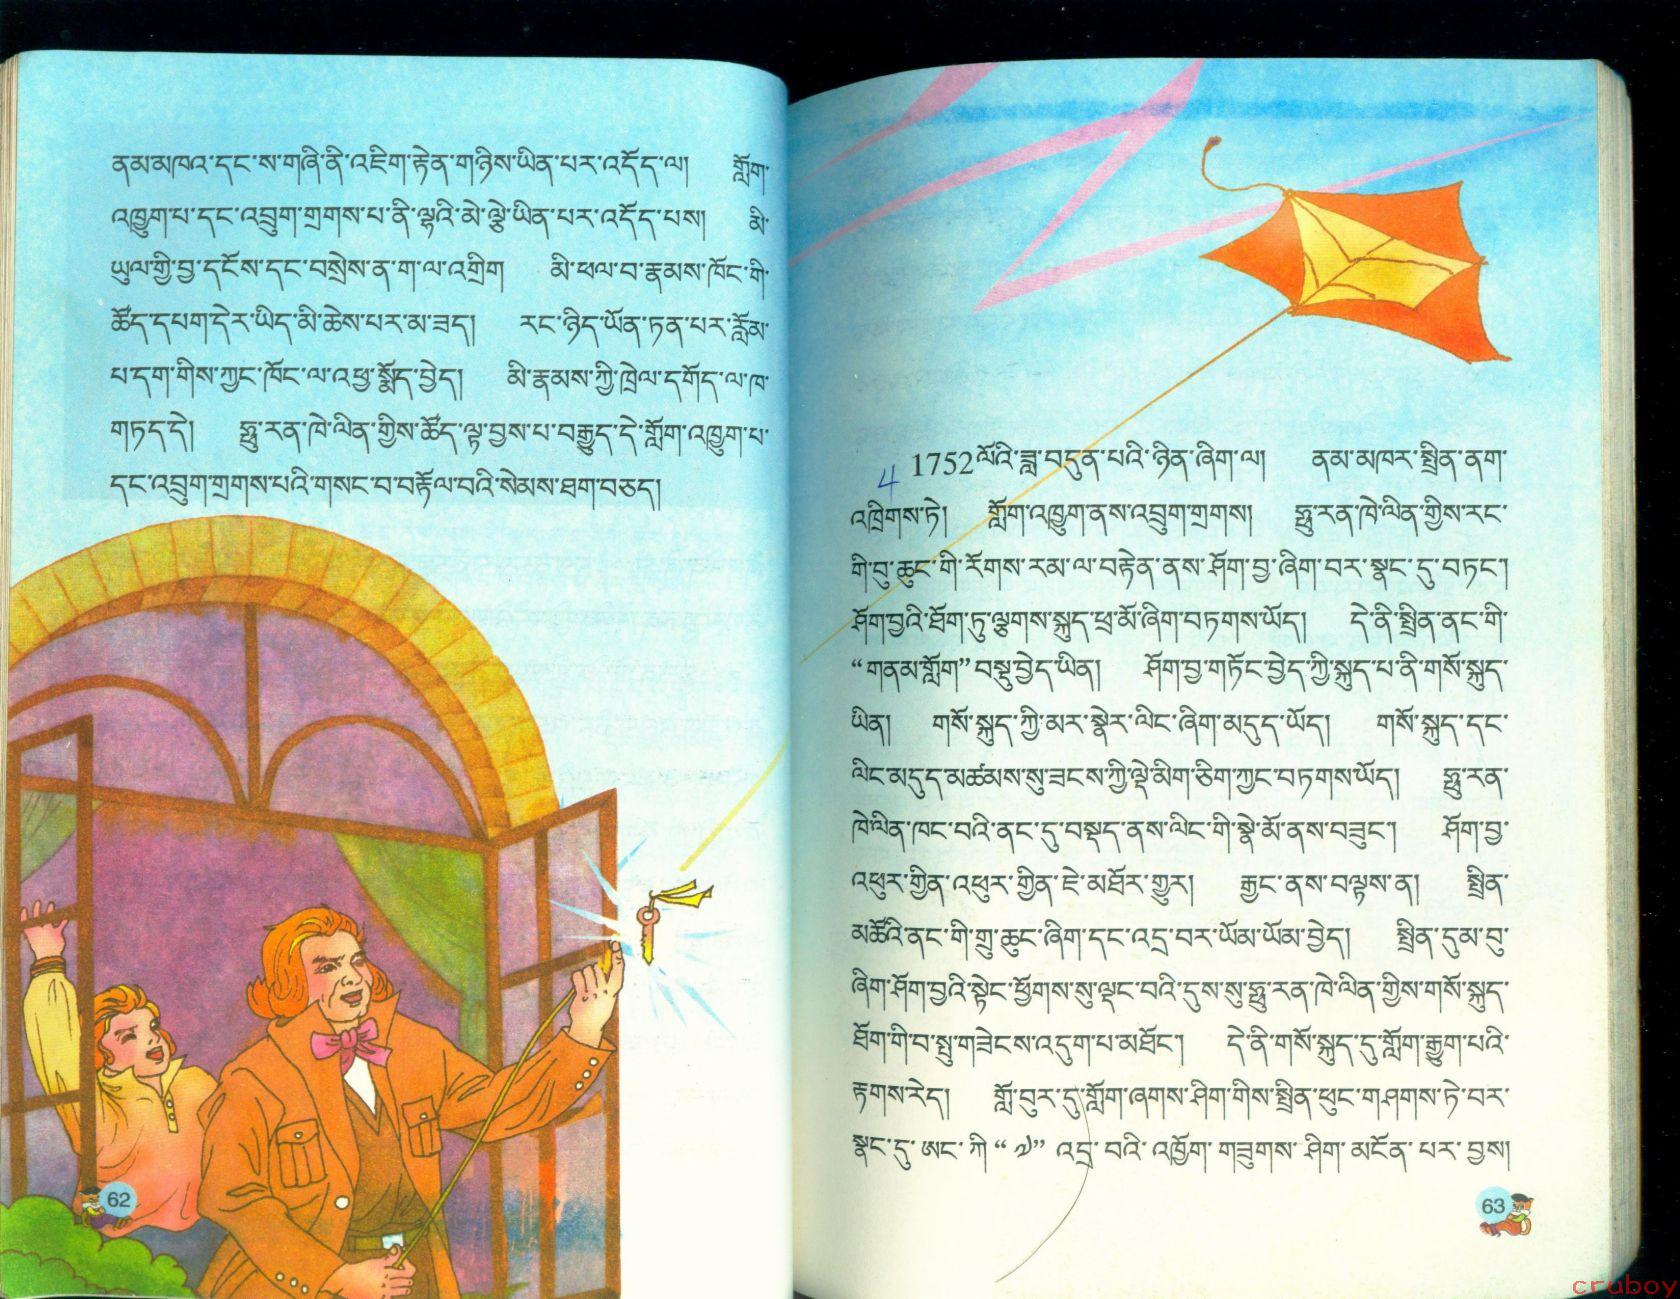 ནམ་མཁའ་དང་ས་གཞི་ནི་འཇིག་རྟེན་གཉིས་ཡིན་པར་འདོད་ལ། གློག་
འཁྱུག་པ་དང་འབྲུག་གྲགས་པ་ནི་ལྷའི་མེ་ལྕེ་ཡིན་པར་འདོད་པས། མི་
ཡུལ་གྱི་བྱ་དངོས་དང་བསྲེས་ན་ག་ལ་འགྲིག མི་ཕལ་བ་རྣམས་ཁོང་གི་
ཚོད་དཔག་དེར་ཡིད་མི་ཆེས་པར་མ་ཟད། རང་ཉིད་ཡོན་ཏན་པར་རློམ་
པ་དག་གིས་ཀྱང་ཁོང་ལ་འཕྱ་སྨོད་བྱེད། མི་རྣམས་ཀྱི་ཁྲེལ་དགོད་ལ་ཁ་
གཏད་དེ། ཧྥུ་རན་ཁེ་ལིན་གྱིས་ཚོད་ལྟ་བྱས་པ་བརྒྱུད་དེ་གློག་འཁྱུག་པ་
དང་འབྲུག་གྲགས་པའི་གསང་བ་བརྟོལ་བའི་སེམས་ཐག་བཅད།
62
4 1752ལོའི་ཟླ་བདུན་པའི་ཉིན་ཞིག་ལ། ནམ་མཁར་སྤྲིན་ནག་
འཁྲིགས་ཏེ། གློག་འཁྱུག་ནས་འབྲུག་གྲགས། ཧྥུ་རན་ཁེ་ལིན་གྱིས་རང་
གི་བུ་ཆུང་གི་རོགས་རམ་ལ་བརྟེན་ནས་ཤོག་བྱ་ཞིག་བར་སྣང་དུ་བཏང་།
ཤོག་བྱའི་ཐོག་ཏུ་ལྕགས་སྐུད་ཕྲ་མོ་ཞིག་བཏགས་ཡོད། དེ་ནི་སྤྲིན་ནང་གི་
“གནམ་གློག”བསྡུ་བྱེད་ཡིན། ཤོག་བྱ་གཏོང་བྱེད་ཀྱི་སྐུད་པ་ནི་གསོ་སྐུད་
ཡིན། གསོ་སྐུད་ཀྱི་མར་སྣེར་ལིང་ཞིག་མདུད་ཡོད། གསོ་སྐུད་དང་
ལིང་མདུད་མཚམས་སུ་ཟངས་ཀྱི་ལྡེ་མིག་ཅིག་ཀྱང་བཏགས་ཡོད། ཧྥུ་རན་
ཁེ་ལིན་ཁང་བའི་ནང་དུ་བསྡད་ནས་ལིང་གི་སྣེ་མོ་ནས་བཟུང་། ཤོག་བྱ་
འཕུར་གྱིན་འཕུར་གྱིན་ཇེ་མཐོར་གྱུར། རྒྱང་ནས་བལྟས་ན། སྤྲིན་
མཚོའི་ནང་གི་གྲུ་ཆུང་ཞིག་དང་འདྲ་བར་ཡོམ་ཡོམ་བྱེད། སྤྲིན་དུམ་བུ་
ཞིག་ཤོག་བྱའི་སྟེང་ཕྱོགས་སུ་ལྡང་བའི་དུས་སུ་ཧྥུ་རན་ཁེ་ལིན་གྱིས་གསོ་སྐུད་
ཐོག་གི་བ་སྤུ་གཟེངས་འདུག་པ་མཐོང་། དེ་ནི་གསོ་སྐུད་དུ་གློག་རྒྱུག་པའི་
རྟགས་རེད། གློ་བུར་དུ་གློག་ཞགས་ཤིག་གིས་སྤྲིན་ཕུང་གཤགས་ཏེ་བར་
སྣང་དུ་ཨང་ཀི“༧”འདྲ་བའི་འཁྱོག་གཟུགས་ཤིག་མངོན་པར་བྱས།
63
cruboy